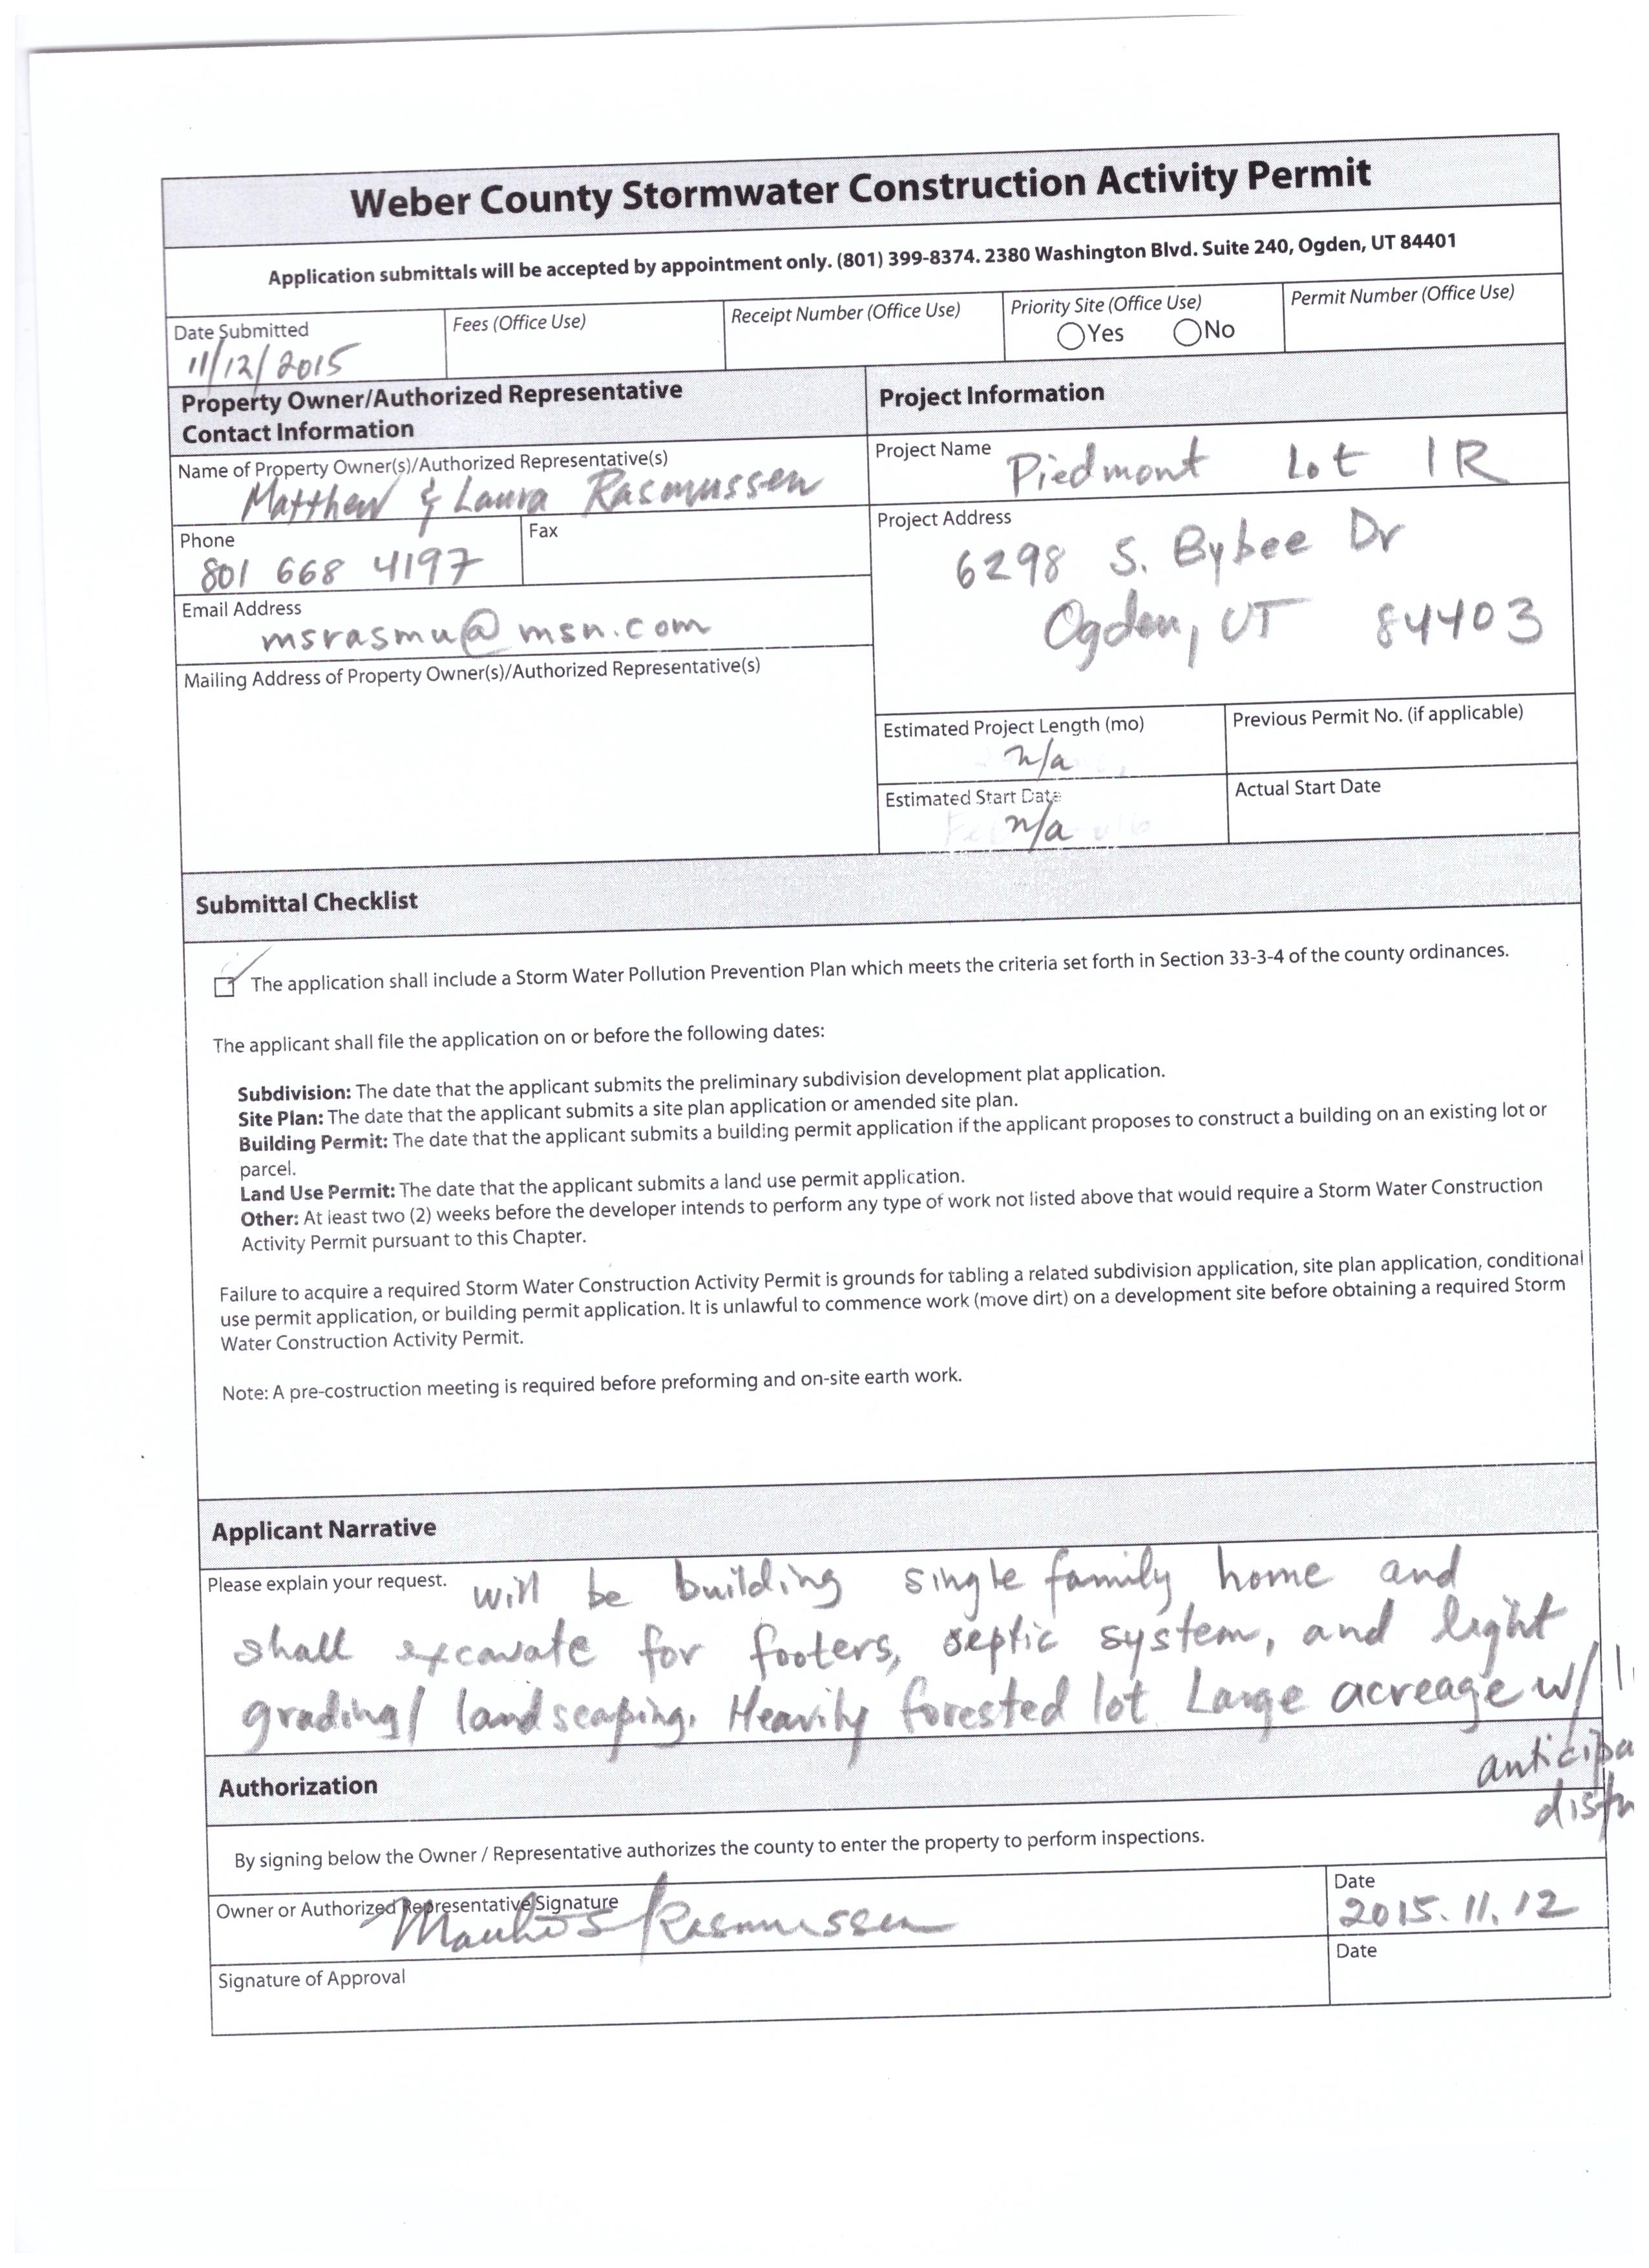 Weber County Stormwater Construction Activity Permit
Application submittals will be accepted by appointment only. (801) 399-8374. 2380 Washington Blvd. Suite 240, Ogden, UT 84401
Date Submitted
11/12/2015
Fees (Office Use)
Receipt Number (Office Use)
Priority Site (Office Use)
Yes No
Permit Number (Office Use)
Property Owner/Authorized Representative
Contact Information
Name of Property Owner(s)/Authorized Representative(s)
Matthew & Laura Rasmussen
Phone
801 668 4197
Fax
Email Address
msrasmu@msn.com
Mailing Address of Property Owner(s)/Authorized Representative(s)
Project Information
Project Name
Piedmont Lot 1R
Project Address
6298 S. Bybee Dr
Ogden, UT 84403
Estimated Project Length (mo)
n/a
Previous Permit No. (if applicable)
Estimated Start Date
n/a
Actual Start Date
Submittal Checklist
The application shall include a Storm Water Pollution Prevention Plan which meets the criteria set forth in Section 33-3-4 of the county ordinances.
The applicant shall file the application on or before the following dates:
Subdivision: The date that the applicant submits the preliminary subdivision development plat application.
Site Plan: The date that the applicant submits a site plan application or amended site plan.
Building Permit: The date that the applicant submits a building permit application if the applicant proposes to construct a building on an existing lot or
parcel.
Land Use Permit: The date that the applicant submits a land use permit application.
Other: At least two (2) weeks before the developer intends to perform any type of work not listed above that would require a Storm Water Construction
Activity Permit pursuant to this Chapter.
Failure to acquire a required Storm Water Construction Activity Permit is grounds for tabling a related subdivision application, site plan application, conditional
use permit application, or building permit application. It is unlawful to commence work (move dirt) on a development site before obtaining a required Storm
Water Construction Activity Permit.
Note: A pre-costruction meeting is required before preforming and on-site earth work.
Applicant Narrative
Please explain your request. will be building single family home and
shall excavate for footers, septic system, and light
grading/ landscaping. Heavily forested lot Large acreage w/
anticipa
Authorization
By signing below the Owner / Representative authorizes the county to enter the property to perform inspections.
Owner or Authorized Representative Signature
Rasmussen
Date
2015.11.12
Signature of Approval
Date